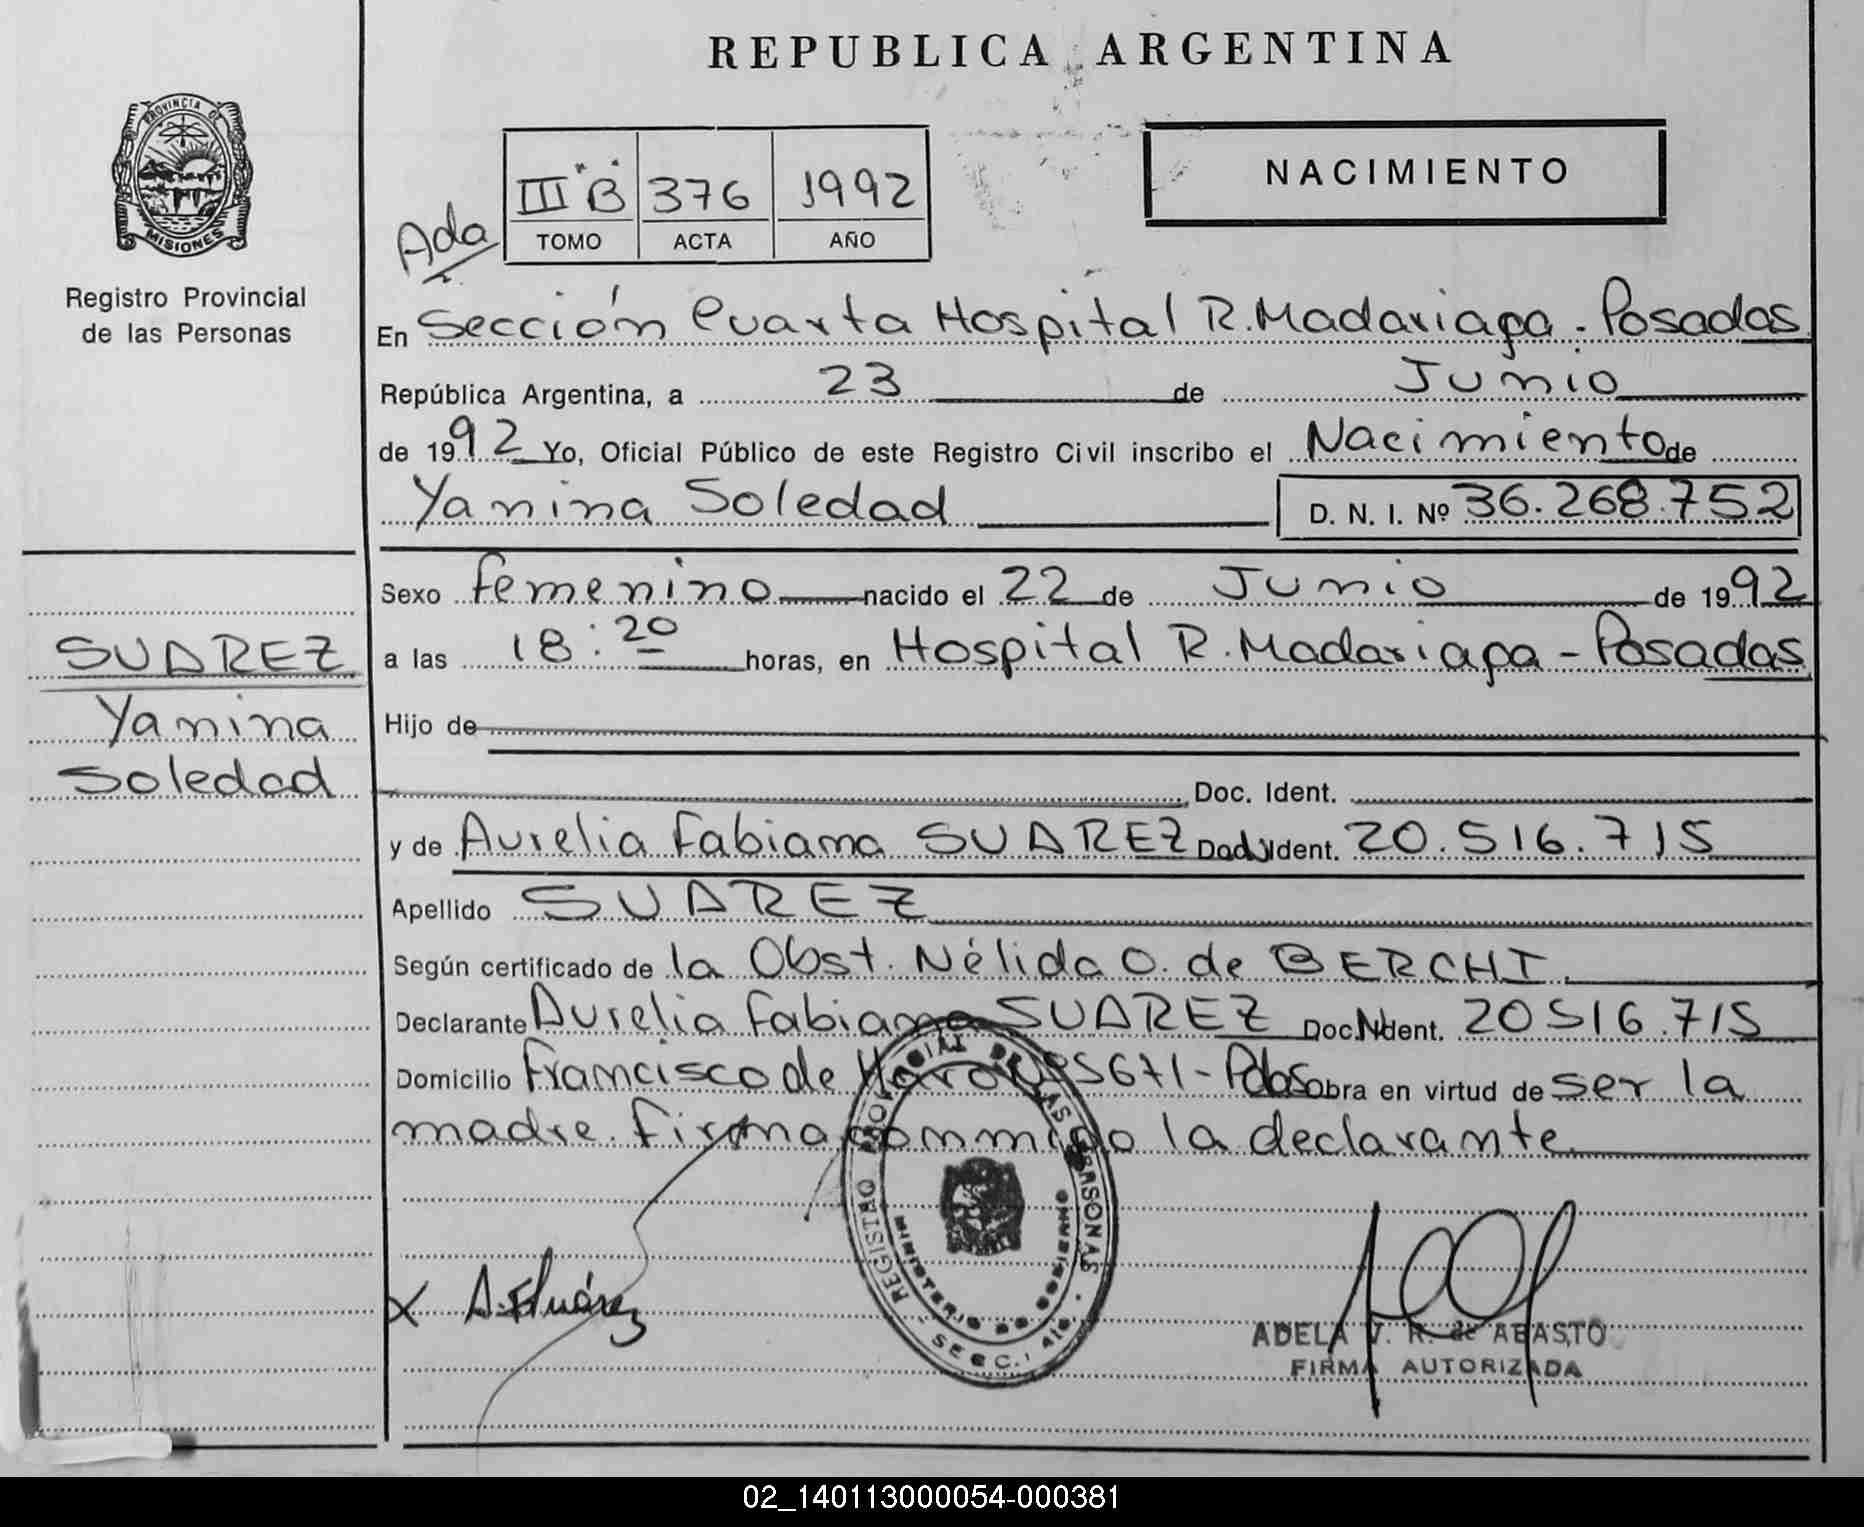 REPUBLICA ARGENTINA
PROVINCIA DE
MISIONES
Registro Provincial
de las Personas
NACIMIENTO
Ada
III "B" 376 1992
TOMO ACTA AÑO
En Sección Cuarta Hospital R. Madariaga - Posadas
República Argentina, a 23 de Junio
de 1992 Yo, Oficial Público de este Registro Civil inscribo el Nacimiento de
Yanina Soledad D. N. I. Nº 36.268.752
Sexo femenino nacido el 22 de Junio de 1992
SUAREZ
Yanina
Soledad
a las 18:20 horas, en Hospital R. Madariaga - Posadas
Hijo de
Doc. Ident.
y de Aurelia Fabiana SUAREZ Doc. Ident. 20.516.715
Apellido SUAREZ
Según certificado de la Obst. Nélida O. de BERCHI
Declarante Aurelia Fabiana SUAREZ Doc. Ident. 20516.715
Domicilio Francisco de Haro Nº 5671 - Pdas Obra en virtud de ser la
madre. Firma conmigo la declarante
REGISTRO PROVINCIAL DE LAS PERSONAS
MINISTERIO DE GOBIERNO
SECC. 4ta.
X A. F. Suárez
ADELA V. R. de ABASTO
FIRMA AUTORIZADA
02_140113000054-000381